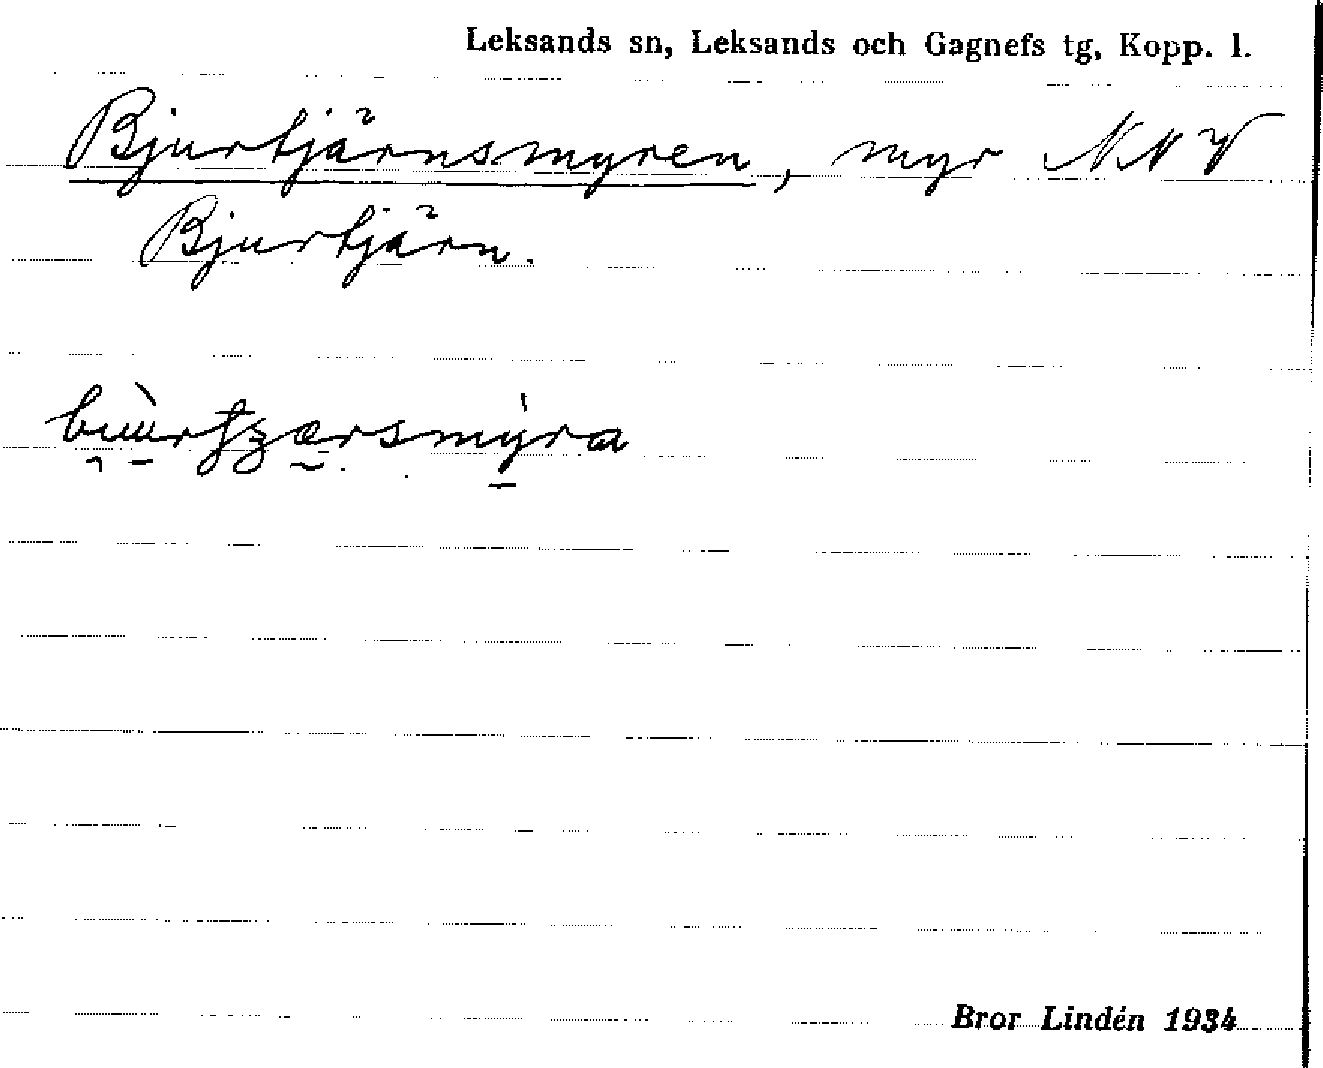 Leksands sn, Leksands och Gagnefs tg, Kopp. l.
Bjurtjärnsmyren, myr NNV
Bjurtjärn.
Bror Lindén 1934